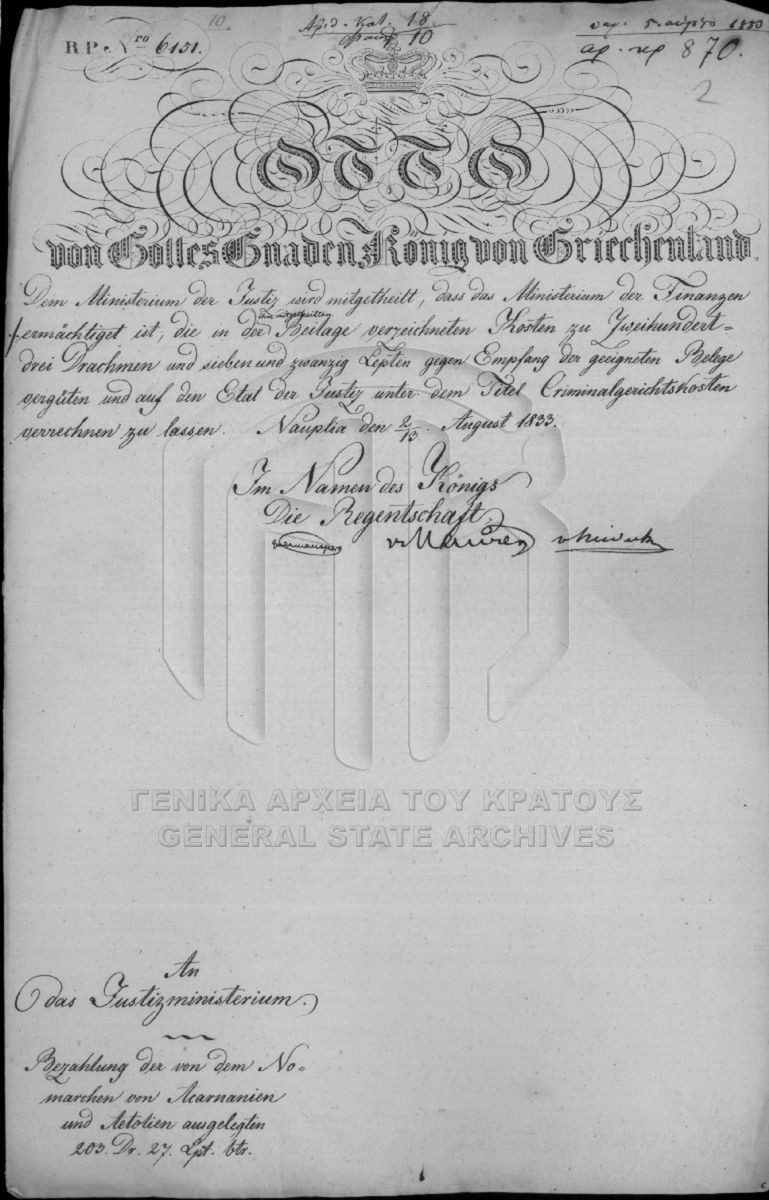 10.
Αριθ. Κατ. 18.
10
1833
R P. Nro 6151.
αρ. πρ 870.
2
OTTO
von Gottes Gnaden, König von Griechenland.
Dem Ministerium der Justiz wird mitgetheilt, dass das Ministerium der Finanzen
ermächtiget ist, die in der Beilage verzeichneten Kosten zu Zweihundert-
drei Drachmen und sieben und zwanzig Lepten gegen Empfang der geeigneten Belege
vergüten und auf den Etat der Justiz unter dem Titel Criminalgerichtskosten
verrechnen zu lassen. Nauplia den 2/13. August 1833.
Im Namen des Königs
Die Regentschaft.
v Maurer
ΓΕΝΙΚΑ ΑΡΧΕΙΑ ΤΟΥ ΚΡΑΤΟΥΣ
GENERAL STATE ARCHIVES
An
das Justizministerium.
Bezahlung der von dem No-
marchen von Acarnanien
und Aetolien ausgelegten
203. Dr. 27. Lpt. btr.